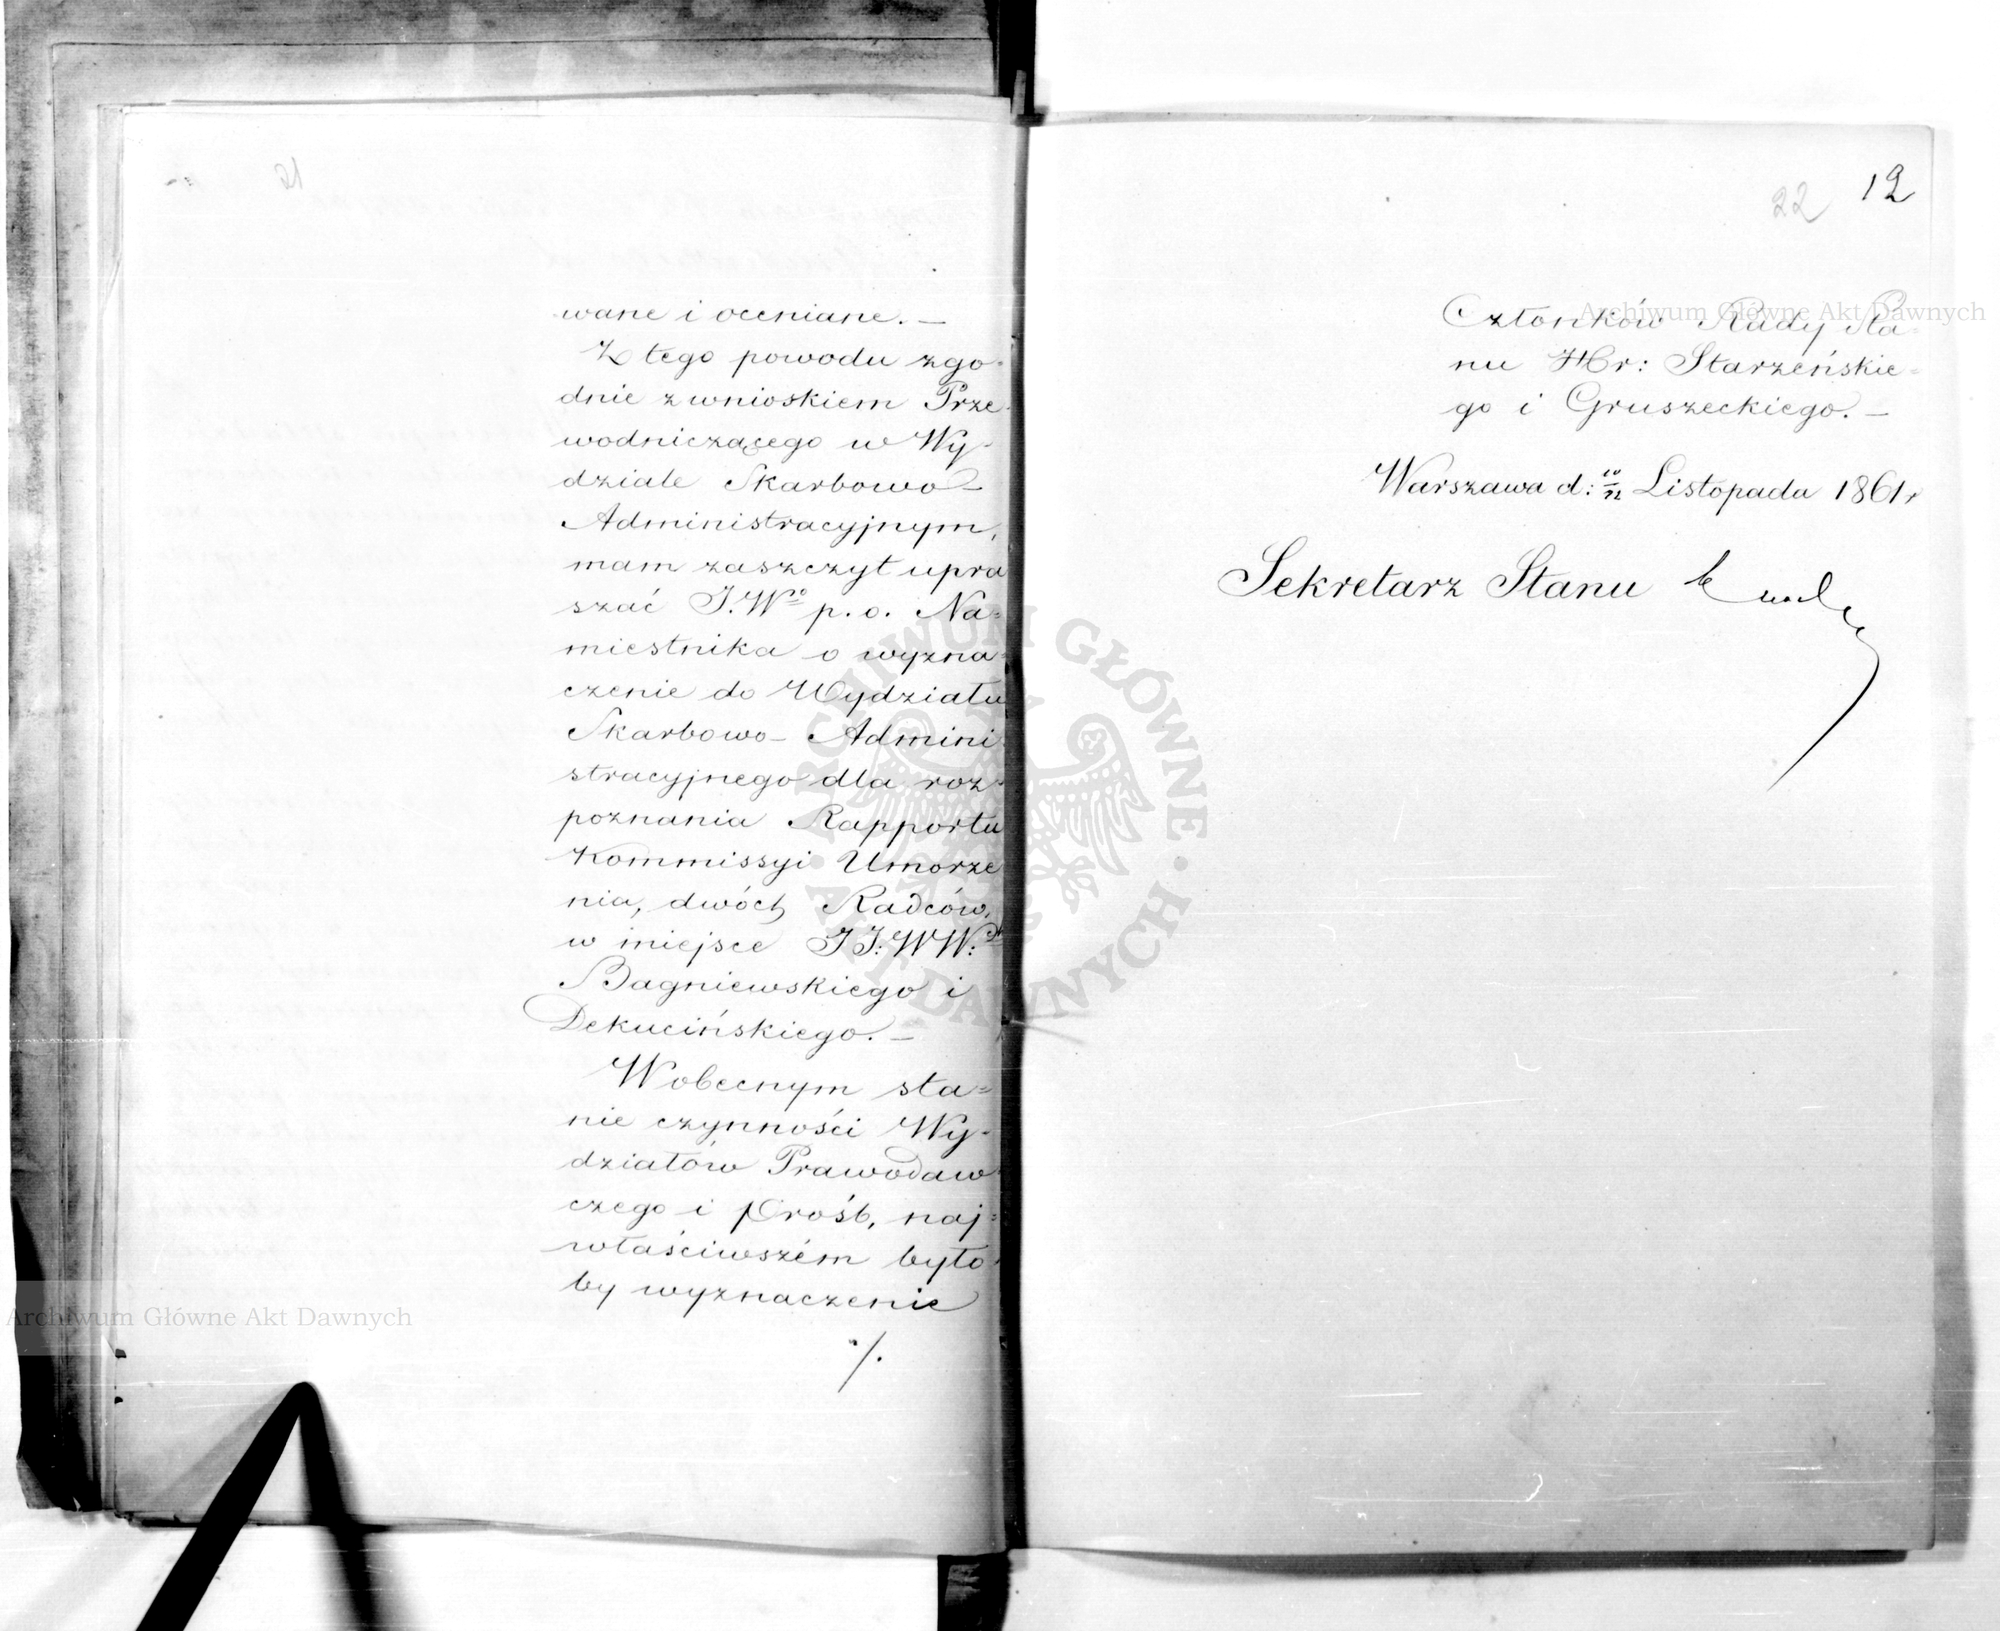 21
wane i oceniane. —
Z tego powodu zgo-
dnie z wnioskiem Prze-
wodniczącego w Wy-
dziale Skarbowo-
Administracyjnym,
mam zaszczyt upra
szać J.Wo p. o. Na=
miestnika o wyzna-
czenie do Wydziału
Skarbowo- Admini-
stracyjnego dla roz-
poznania Rapportu
Kommissyi Umorze
nia, dwóch Radców,
w miejsce JJ: WW:
Bagniewskiego i
Dekucińskiego. —
W obecnym sta=
nie czynności Wy-
działów Prawodaw
czego i Próśb, naj=
właściwszém było-
by wyznaczenie
./.
22 12
Członków Rady Sta-
nu Hr: Starzeńskie-
go i Gruszeckiego. —
Warszawa d: 10/22 Listopada 1861 r
Sekretarz Stanu
Archiwum Główne Akt Dawnych
Archiwum Główne Akt Dawnych
ARCHIWUM GŁÓWNE · AKT DAWNYCH ·